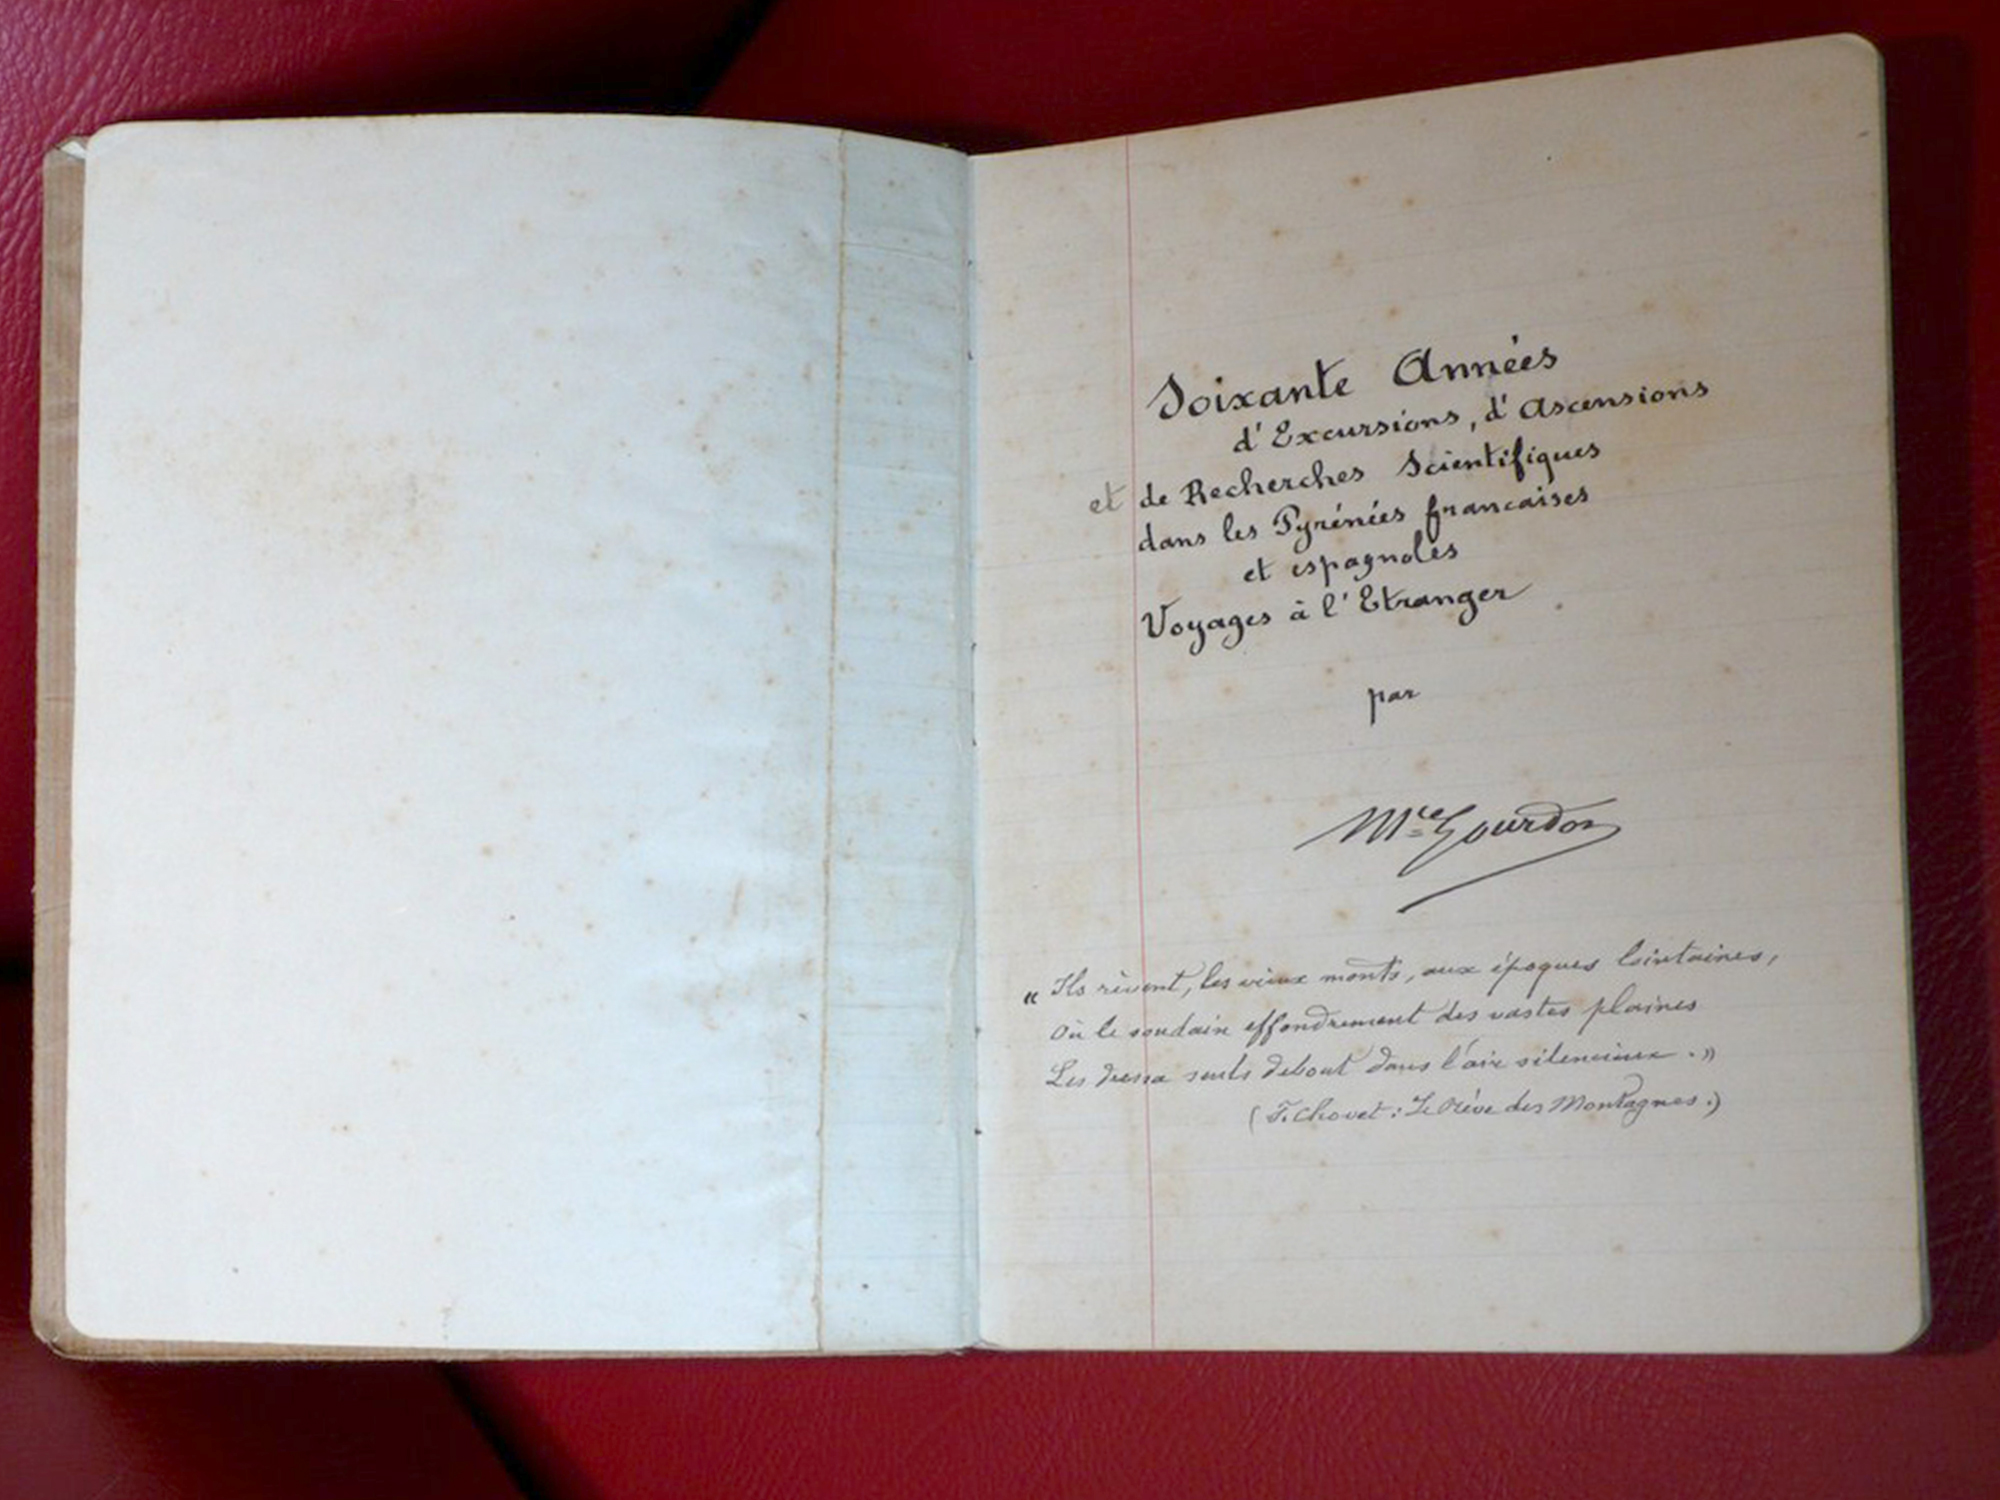 Soixante Années
d'Excursions, d'Ascensions
et de Recherches Scientifiques
dans les Pyrénées françaises
et espagnoles
Voyages à l'Etranger
par
Mce Gourdon
" Ils rêvent, les vieux monts, aux époques lointaines,
Où le soudain effondrement des vastes plaines
Les dressa seuls debout dans l'air silencieux. »
(F. Chovet : Le Rêve des Montagnes.)